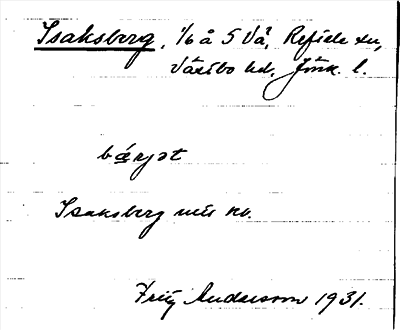 Isaksberg, 1/6 å 5 Vå, Reftele sn,
Västbo hd, Jönk. l.
bærjət
Isaksberg
Fritz Andersson 1931.